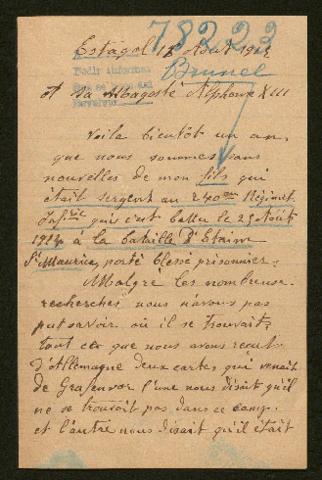 78223
Estagel 18 Aout 1915
Pedir informes
Brunel
A sa Magesté Alphonse XIII
Voila bientôt un an,
que nous sommes sans
nouvelles de mon fils qui
était sergent au 240me Régiment
Infrie qui s'est battu le 25 Août
1914 à la bataille d'Etain
St Maurice, porté blessé prisonnier.
Malgré les nombreuses
recherches nous n'avons pas
put savoir où il se trouvait,
tout ce que nous avons recut
d'Allemagne deux cartes qui venait
de Grafenvor l'une nous disait qu'il
ne se trouvait pas dans ce camp,
et l'autre nous disait qu'il était